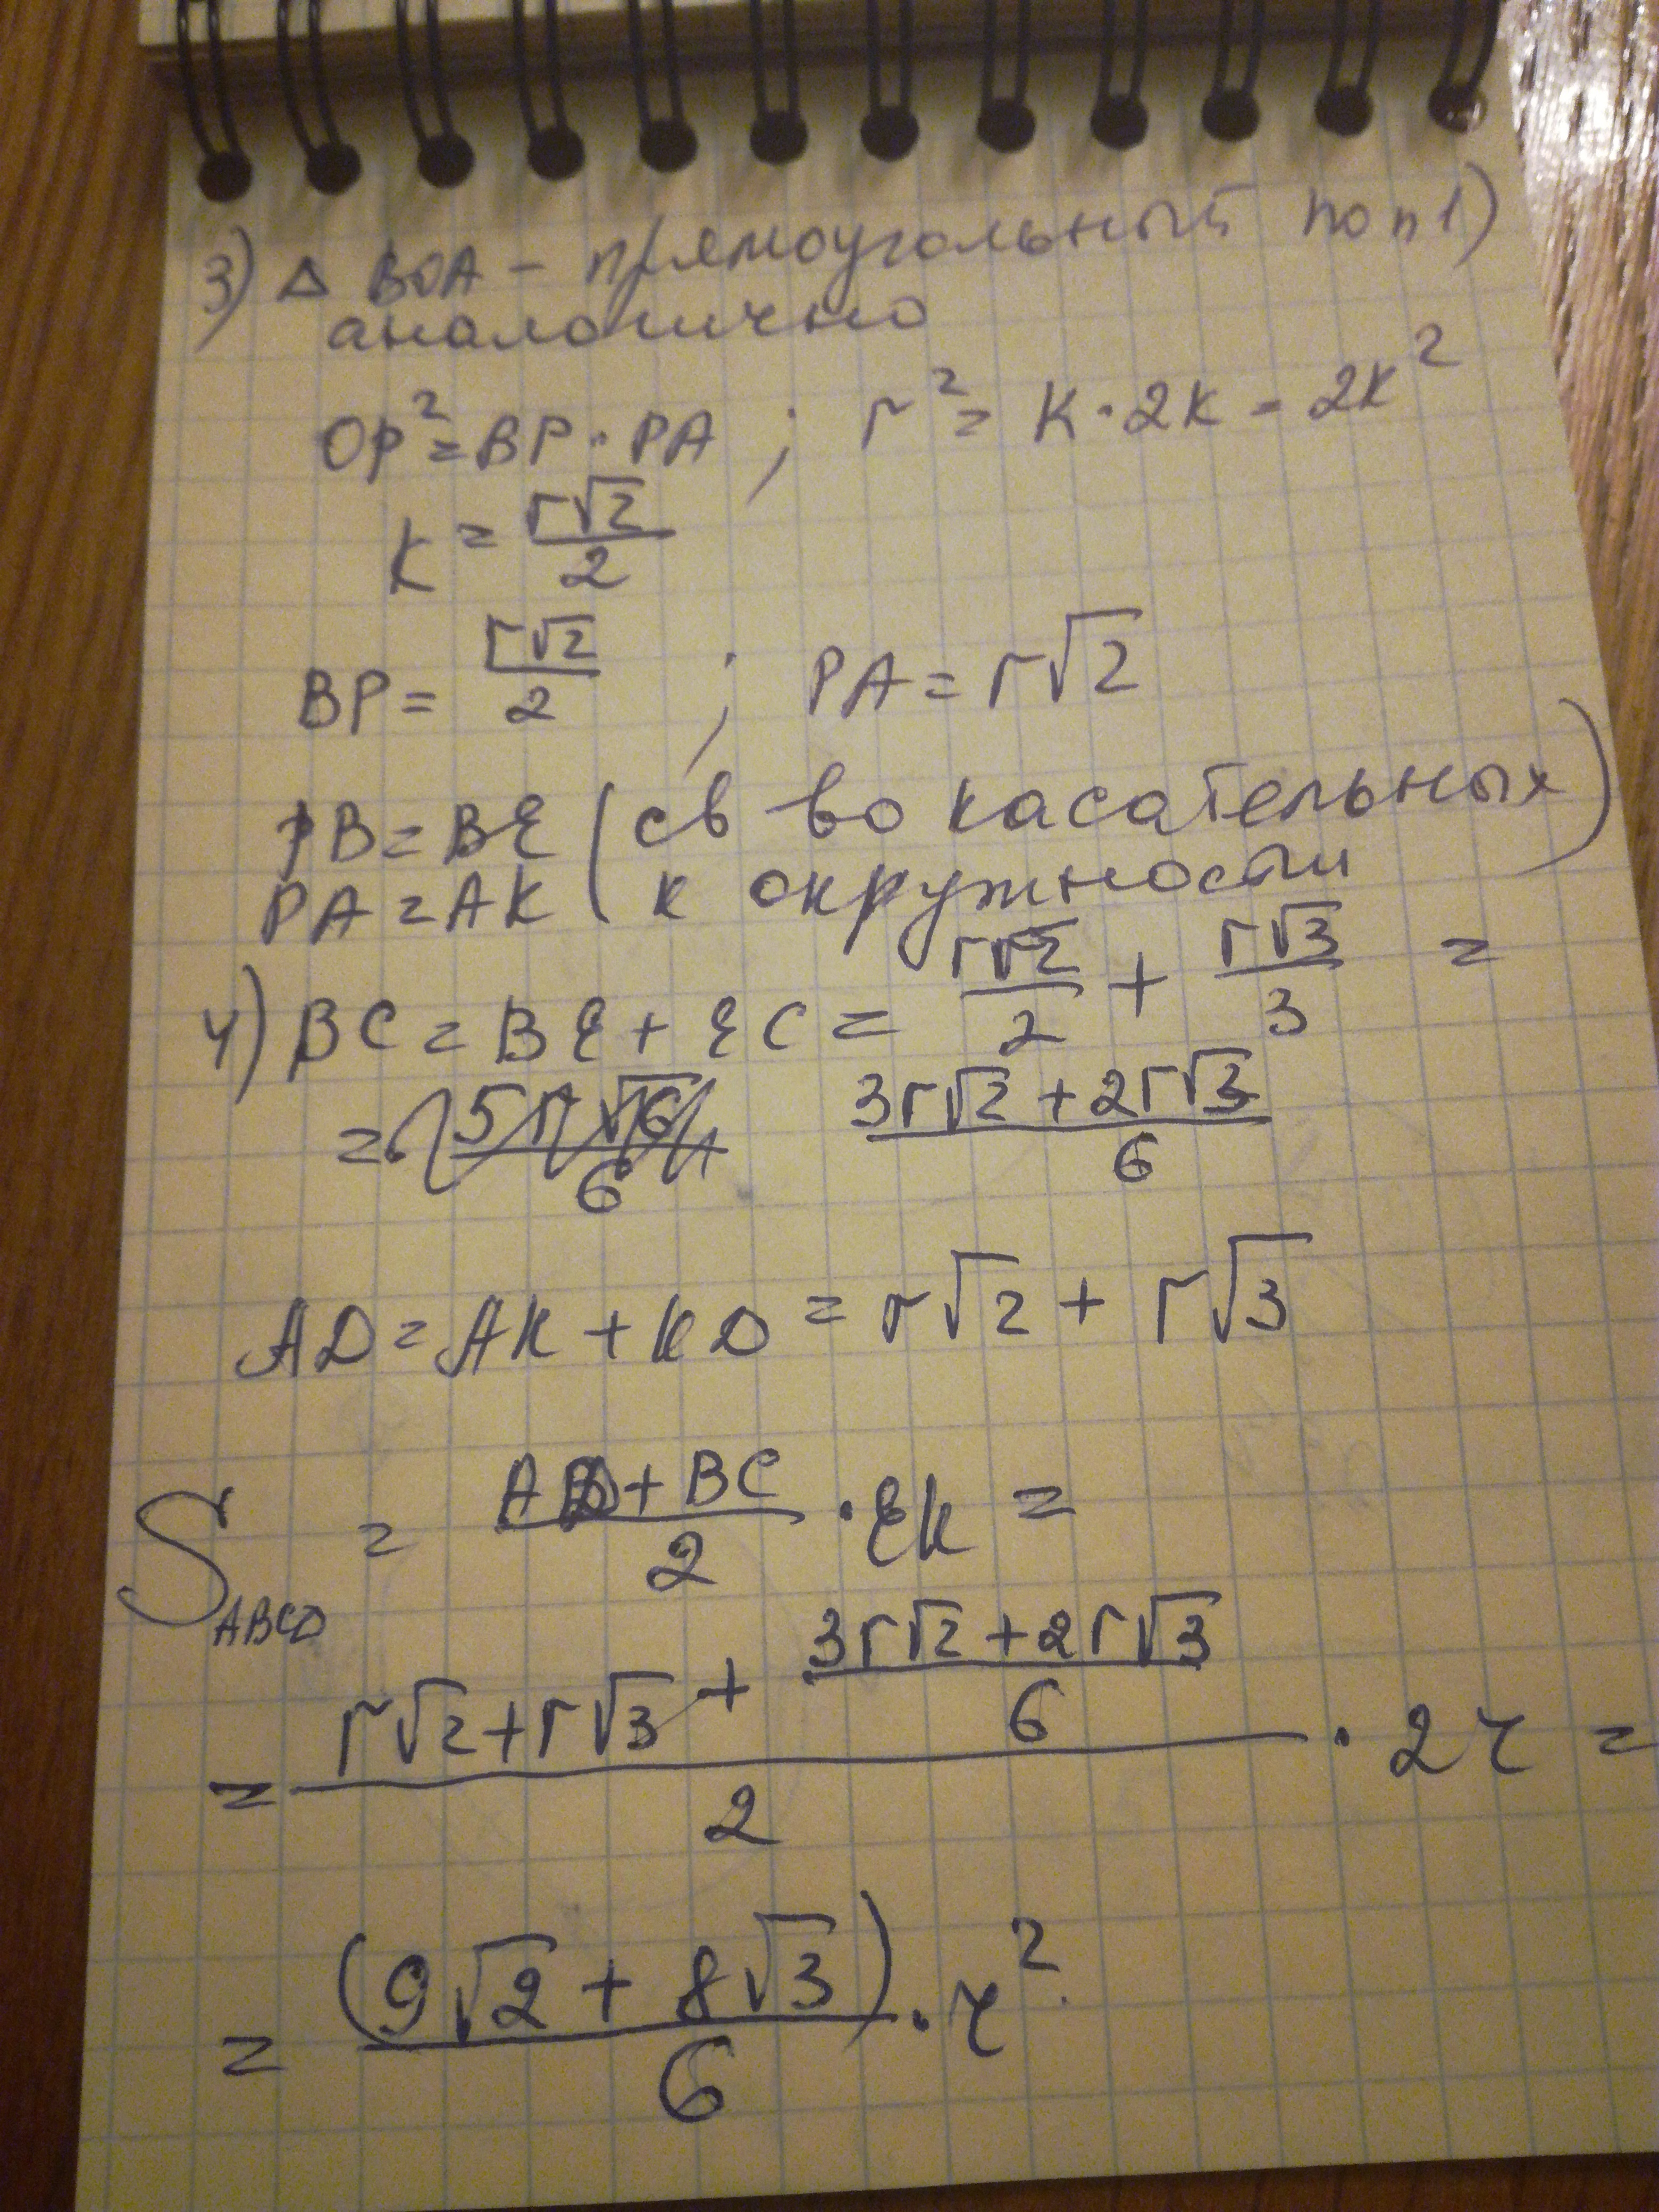 3) Δ BOA - прямоугольный по п 1)
аналогично
OP² = BP · PA ; r² = K · 2K = 2K²
K = r√2/2
BP = r√2/2 ; PA = r√2
PB = BE (св во касательных)
PA = AK ( к окружности
4) BC = BE + EC = r√2/2 + r√3/3 =
= (3r√2 + 2r√3)/6
AD = AK + KD = r√2 + r√3
S ABCD = (AD + BC)/2 · EK =
= (r√2 + r√3 + (3r√2 + 2r√3)/6)/2 · 2r =
= (9√2 + 8√3)/6 · r²